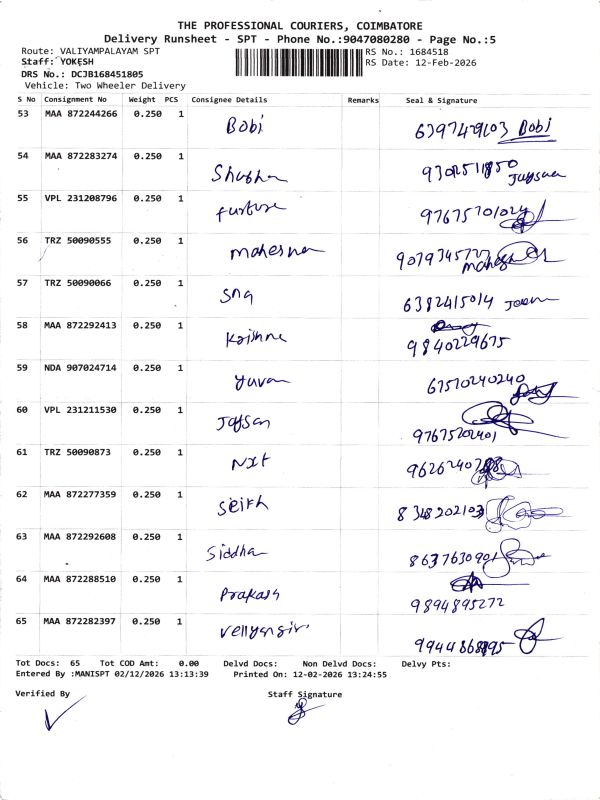 THE PROFESSIONAL COURIERS, COIMBATORE
Delivery Runsheet - SPT - Phone No.:9047080280 - Page No.:5
Route: VALIYAMPALAYAM SPT
RS No.: 1684518
Staff: YOKESH
RS Date: 12-Feb-2026
DRS No.: DCJB168451805
Vehicle: Two Wheeler Delivery
S No Consignment No Weight PCS Consignee Details Remarks Seal & Signature
53 MAA 872244266 0.250 1 Bobi Bobi
54 MAA 872283274 0.250 1
55 VPL 231208796 0.250 1
56 TRZ 50090555 0.250 1
57 TRZ 50090066 0.250 1 sng 6382415014
58 MAA 872292413 0.250 1 Krishne 9840229675
59 NDA 907024714 0.250 1 yuvan 67570240240
60 VPL 231211530 0.250 1 97675202401
61 TRZ 50090873 0.250 1
62 MAA 872277359 0.250 1 8348202103
63 MAA 872292608 0.250 1 Siddha 8637630901
64 MAA 872288510 0.250 1 Prakash 9894895272
65 MAA 872282397 0.250 1
Tot Docs: 65 Tot COD Amt: 0.00 Delvd Docs: Non Delvd Docs: Delvy Pts:
Entered By :MANISPT 02/12/2026 13:13:39 Printed On: 12-02-2026 13:24:55
Verified By Staff Signature